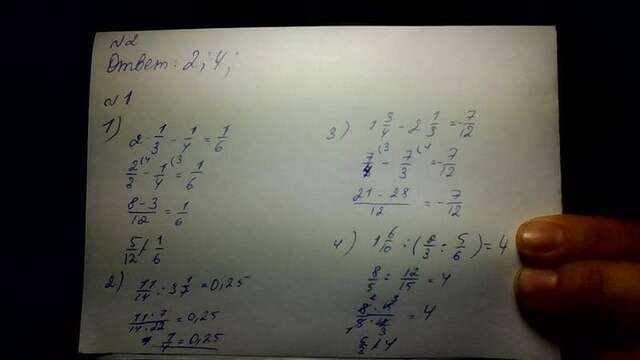 №2
Ответ: 2; 4;
№1
1)
2 · 1/3 - 1/4 = 1/6
2/3 (4 - 1/4 (3 = 1/6
8-3/12 = 1/6
5/12 ≠ 1/6
2) 11/14 : 3 1/7 = 0,25
11·7/14·22 = 0,25
= 0,25
3) 1 3/4 - 2 1/3 = -7/12
7/4 (3 - 7/3 (4 = -7/12
21-28/12 = -7/12
4) 1 6/10 : (2/3 : 5/6) = 4
8/5 : 12/15 = 4
= 4
≠ 4